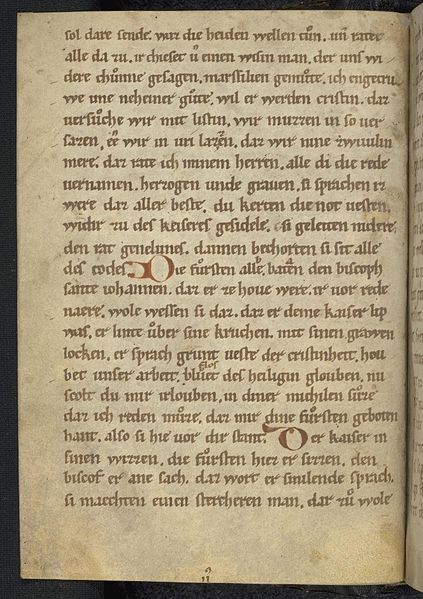 sol dare sende. waz die heiden wellen tůn. uñ ratet
alle da zu. ir chieset ů einen wisin man. der uns wi
dere chůnne gesagen. marsilien gemůte. ich engetru
we une neheiner gůte. wil er werden cristin. daz
versůche wir mit listin. wir můzzen in so ver
sazen. ee wir in uri lazen. daz wir nine zwiuilin
mere. daz rate ich minem herren. alle di die rede
uernamen. herzogen unde grauen. si sprachen iz
were daz aller beste. du kerten die not uesten.
widir zu des keiseres gesidele. si geleiten nidere
den rat genelunes. dannen bechorten si sit alle
des todes. Die fůrsten alle. baten den biscoph
sante iohannen. daz er ze houe were. er uor rede
naere. wole wessen si daz. daz er deme kaiser lip
was. er linte ůber sine kruchen. mit sinen grawen
locken. er sprach grunt ueste der cristinheit. hou
bet unser arbeit. blůet des heiligin glouben. nu
scolt du mir irlouben. in diner michilen sůze
daz ich reden můze. daz mir dine fůrsten geboten
hant. also si hie uor dir stant. Der kaiser in
sinen wizzen. die fůrsten hiez er sizzen. den
biscof er ane sach. daz wort er smilende sprach.
si maechten einen stercheren man. dar zů wole